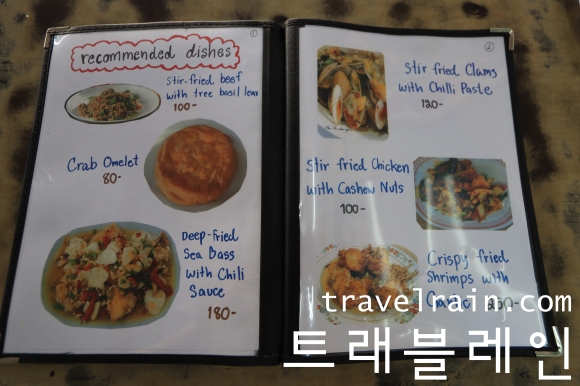 ①
recommended dishes
Stir-fried beef
with tree basil leav
100-
Crab Omelet
80-
Deep-fried
Sea Bass
with Chili
Sauce
180-
②
Stir fried Clams
with Chilli Paste
120-
Stir fried Chicken
with Cashew Nuts
100-
Crispy fried
Shrimps with
travelrain.com
트래블레인